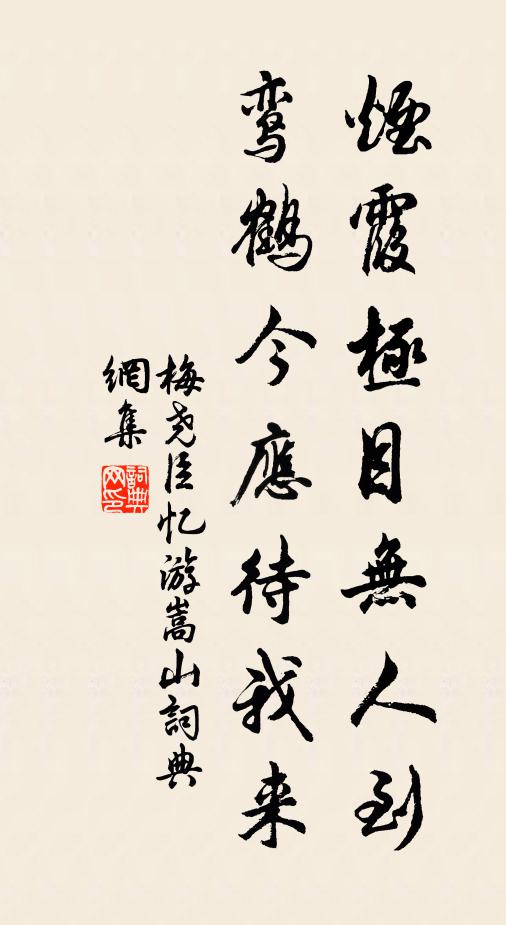 煙霞極目無人到
鸾鶴今應待我来
梅尧臣忆游嵩山詞典
網集
詞典
网印